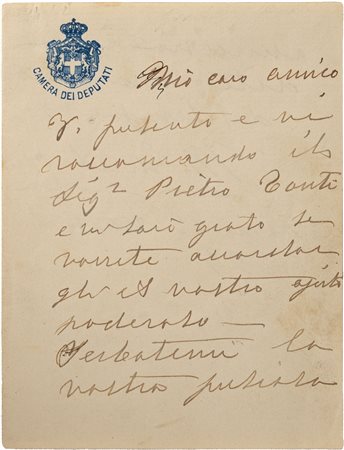 CAMERA DEI DEPUTATI
Mio caro amico
Vi presento e vi
raccomando il
Sigr Pietro Conti
e vi sarò grato se
vorrete accordar
gli il vostro ajuto
poderoso —
Serbatemi la
vostra preziosa